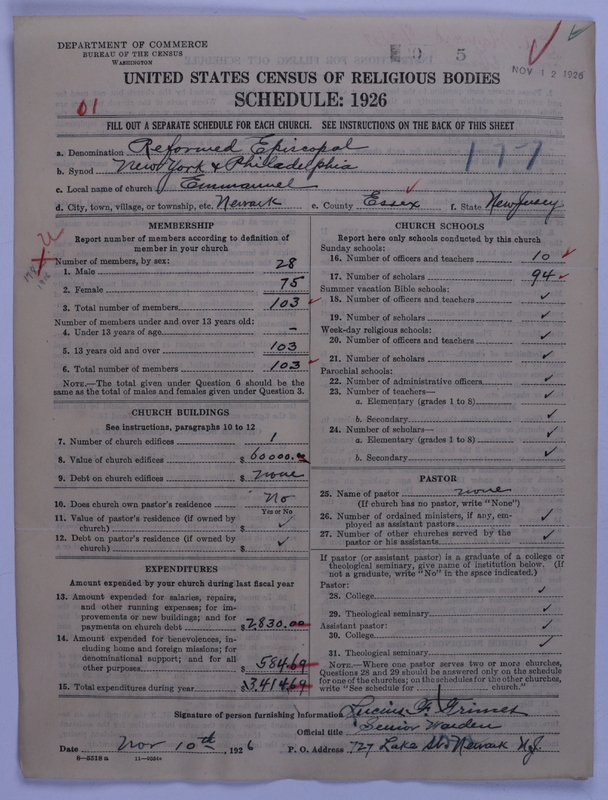 DEPARTMENT OF COMMERCE
BUREAU OF THE CENSUS
WASHINGTON
5
NOV 12 1926
UNITED STATES CENSUS OF RELIGIOUS BODIES
SCHEDULE: 1926
01
FILL OUT A SEPARATE SCHEDULE FOR EACH CHURCH. SEE INSTRUCTIONS ON THE BACK OF THIS SHEET
a. Denomination Reformed Episcopal
177
b. Synod New York & Philadelphia
c. Local name of church Emmanuel
d. City, town, village, or township, etc. Newark e. County Essex f. State New Jersey
MEMBERSHIP
Report number of members according to definition of member in your church
Number of members, by sex:
1. Male 28
2. Female 75
3. Total number of members 103
Number of members under and over 13 years old:
4. Under 13 years of age –
5. 13 years old and over 103
6. Total number of members 103
NOTE.—The total given under Question 6 should be the same as the total of males and females given under Question 3.
CHURCH BUILDINGS
See instructions, paragraphs 10 to 12
7. Number of church edifices 1
8. Value of church edifices $60000.00
9. Debt on church edifices $ none
10. Does church own pastor's residence No
Yes or No
11. Value of pastor's residence (if owned by church) $ ✓
12. Debt on pastor's residence (if owned by church) $ ✓
EXPENDITURES
Amount expended by your church during last fiscal year
13. Amount expended for salaries, repairs, and other running expenses; for improvements or new buildings; and for payments on church debt $2830.00
14. Amount expended for benevolences, including home and foreign missions; for denominational support; and for all other purposes $584.69
15. Total expenditures during year $3414.69
CHURCH SCHOOLS
Report here only schools conducted by this church
Sunday schools:
16. Number of officers and teachers 10
17. Number of scholars 94
Summer vacation Bible schools:
18. Number of officers and teachers ✓
19. Number of scholars ✓
Week-day religious schools:
20. Number of officers and teachers ✓
21. Number of scholars ✓
Parochial schools:
22. Number of administrative officers ✓
23. Number of teachers—
a. Elementary (grades 1 to 8) ✓
b. Secondary ✓
24. Number of scholars—
a. Elementary (grades 1 to 8) ✓
b. Secondary ✓
PASTOR
25. Name of pastor none
(If church has no pastor, write "None")
26. Number of ordained ministers, if any, employed as assistant pastors ✓
27. Number of other churches served by the pastor or his assistants ✓
If pastor (or assistant pastor) is a graduate of a college or theological seminary, give name of institution below. (If not a graduate, write "No" in the space indicated.)
Pastor:
28. College ✓
29. Theological seminary ✓
Assistant pastor:
30. College ✓
31. Theological seminary ✓
NOTE.—Where one pastor serves two or more churches, Questions 28 and 29 should be answered only on the schedule for one of the churches; on the schedules for the other churches, write "See schedule for church."
Signature of person furnishing information Lucius F. Grimes
Official title Senior Warden
Date Nov 10th, 1926 P. O. Address 727 Lake St Newark N.J.
8—5518a 11—9054a